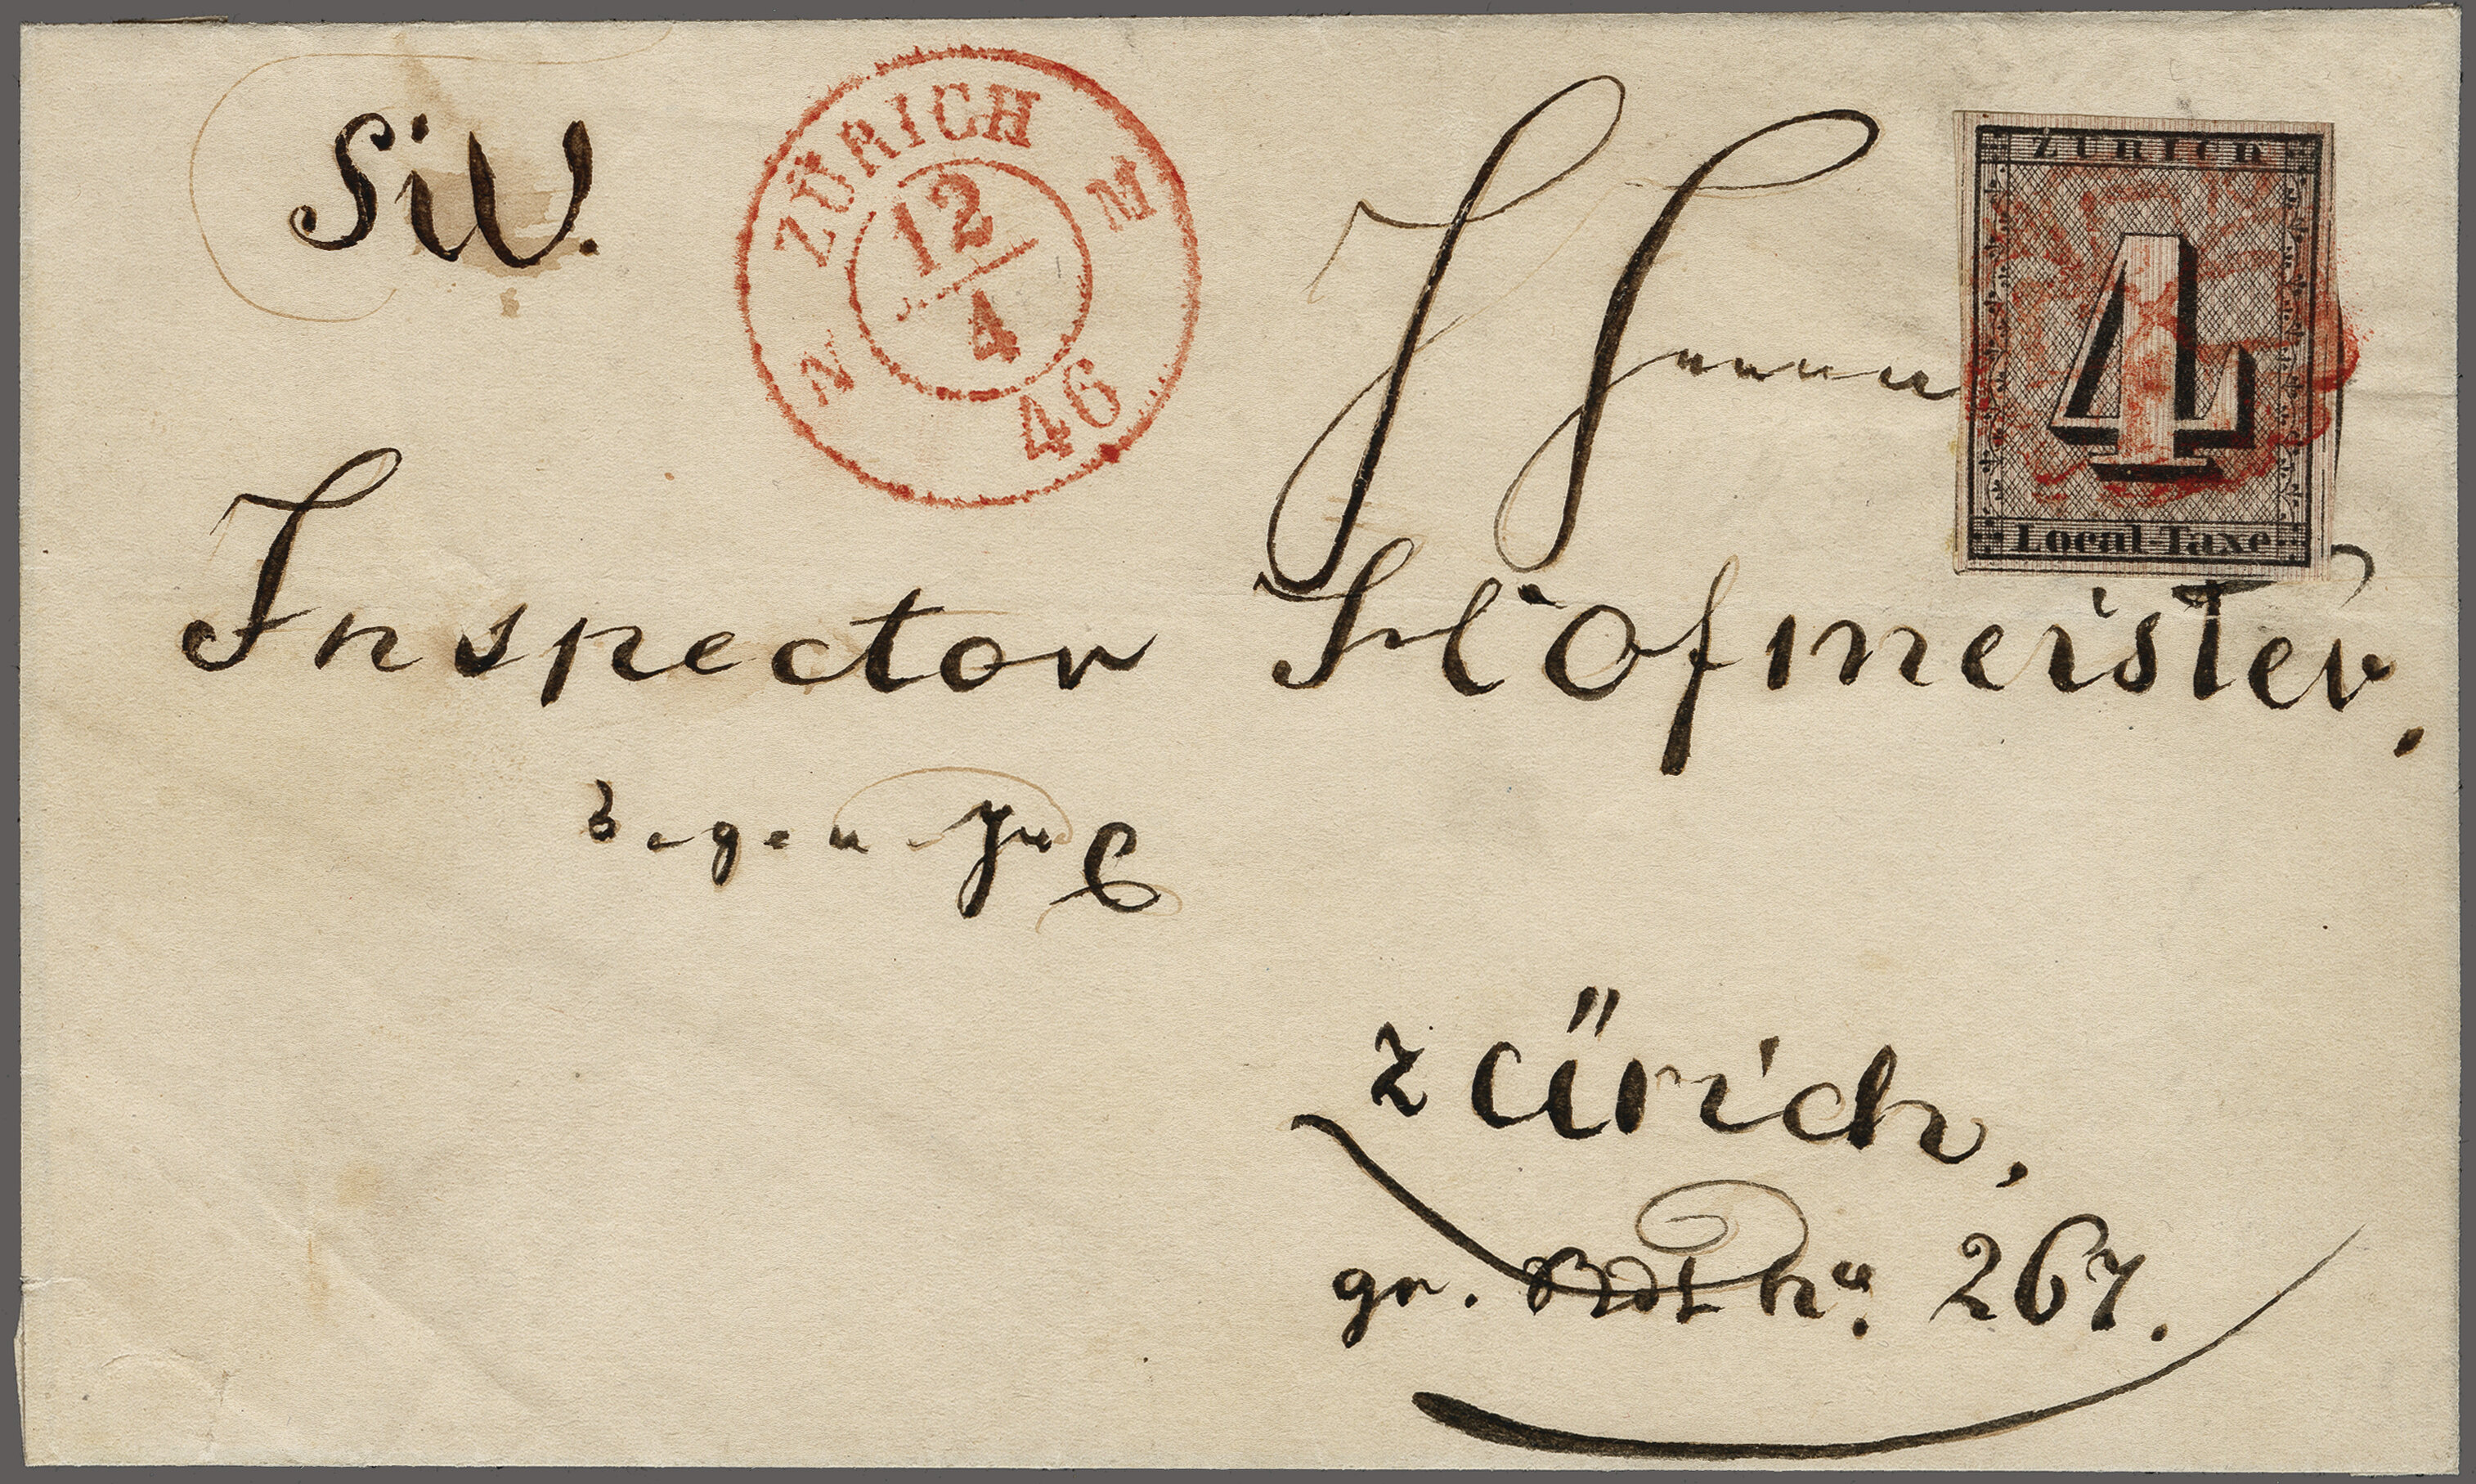 SiW.
ZÜRICH
N M
12
4
46
ZÜRICH
4
Local-Taxe
Inspector Hofmeister,
Zürich,
gr. 267.